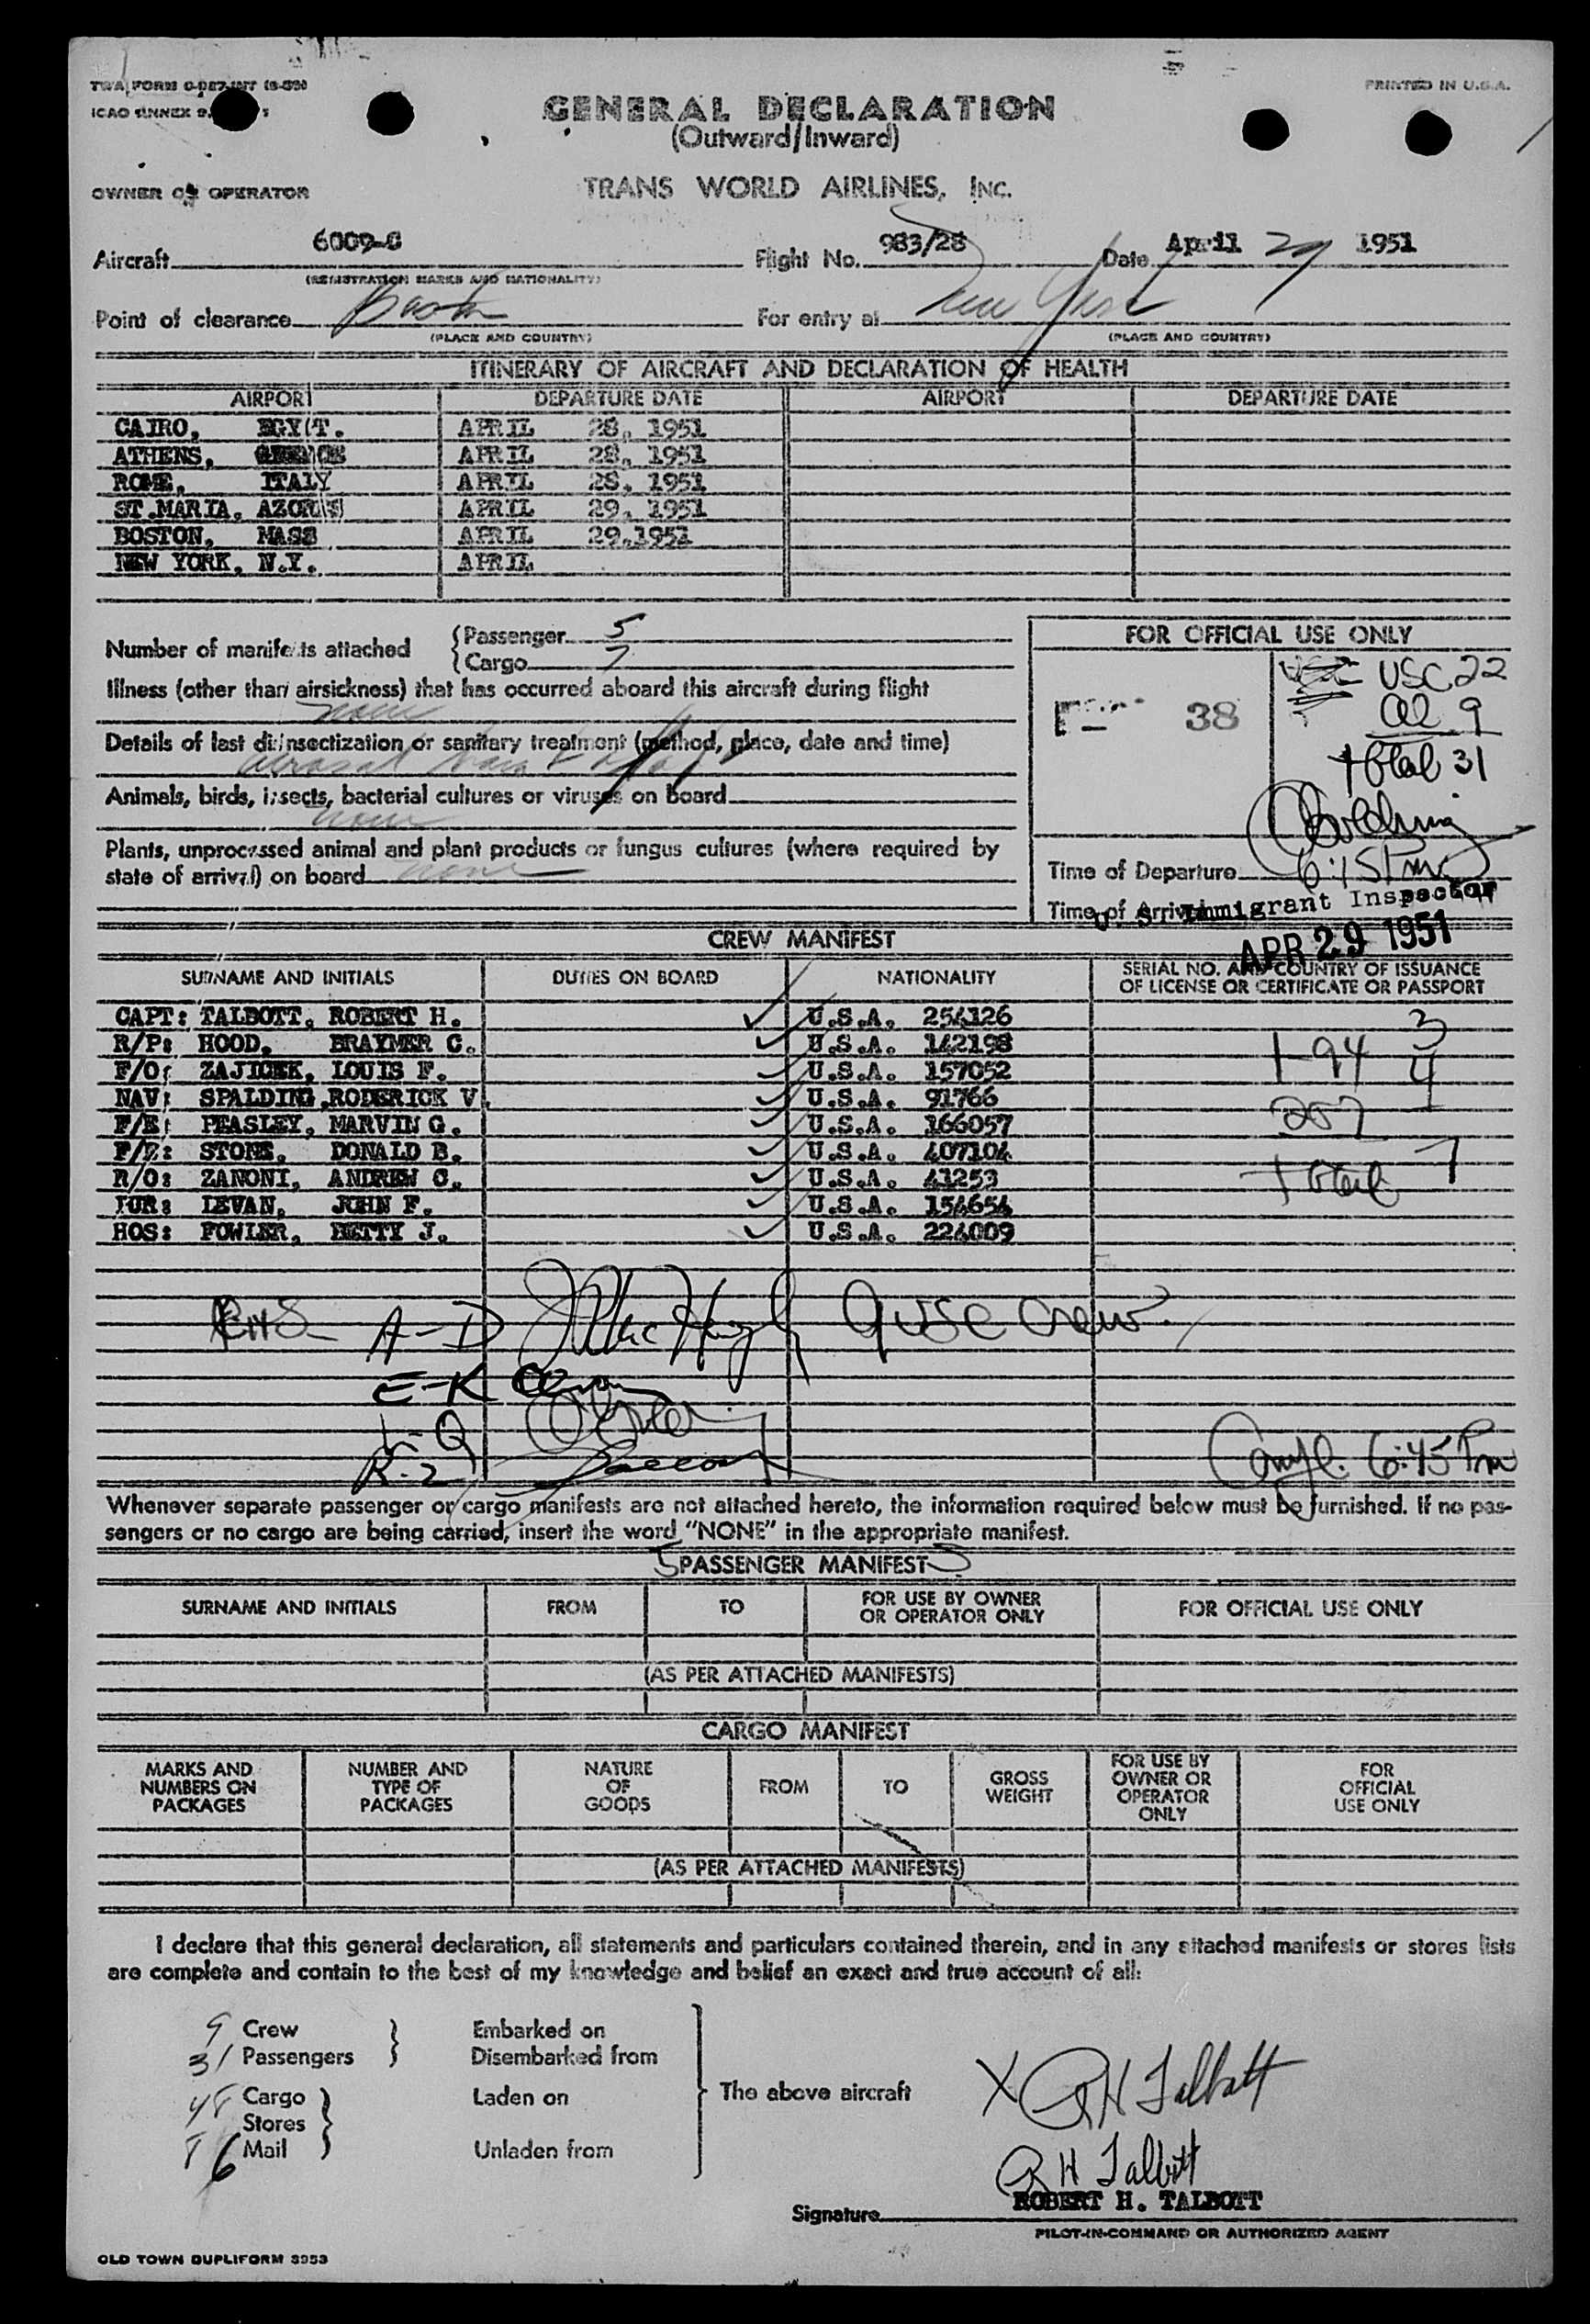 PRINTED IN U.S.A.
ICAO ANNEX 9
GENERAL DECLARATION
(Outward/Inward)
OWNER OR OPERATOR
TRANS WORLD AIRLINES, INC.
Aircraft 6009-C Flight No. 983/28 Date April 29 1951
(REGISTRATION MARKS AND NATIONALITY)
Point of clearance Boston For entry at New York
(PLACE AND COUNTRY) (PLACE AND COUNTRY)
ITINERARY OF AIRCRAFT AND DECLARATION OF HEALTH
AIRPORT DEPARTURE DATE AIRPORT DEPARTURE DATE
CAIRO, APRIL 28, 1951
ATHENS, APRIL 28, 1951
ROME, ITALY APRIL 28, 1951
ST.MARIA, APRIL 29, 1951
BOSTON, MASS APRIL 29,1951
NEW YORK, N.Y. APRIL
Number of manifests attached Passenger 5
Cargo 7
FOR OFFICIAL USE ONLY
38
USC 22
al 9
total 31
Illness (other than airsickness) that has occurred aboard this aircraft during flight
none
Details of last disinsectization or sanitary treatment (method, place, date and time)
Animals, birds, insects, bacterial cultures or viruses on board
none
Plants, unprocessed animal and plant products or fungus cultures (where required by
state of arrival) on board none
Time of Departure 6:15 Pm
Time of Arrival
U. S. Immigrant Inspector
APR 29 1951
CREW MANIFEST
SURNAME AND INITIALS DUTIES ON BOARD NATIONALITY SERIAL NO. AND COUNTRY OF ISSUANCE
OF LICENSE OR CERTIFICATE OR PASSPORT
CAPT: TALBOTT, ROBERT H. U.S.A. 254126
R/P: HOOD, BRAYMER C. U.S.A. 142198
F/O: ZAJICEK, LOUIS F. U.S.A. 157052
NAV: SPALDING,RODERICK V. U.S.A. 91766
F/E: PEASLEY, MARVIN G. U.S.A. 166057
F/E: STONE, DONALD B. U.S.A. 407104
R/O: ZANONI, ANDREW C. U.S.A. 41253
PUR: LEVAN, JOHN F. U.S.A. 154654
HOS: FOWLER, BETTY J. U.S.A. 224009
I-94 3
4
257
total 7
A-D
9 USC Crew.
E-K
L-Q
R-Z
Compl. 6:45 Pm
Whenever separate passenger or cargo manifests are not attached hereto, the information required below must be furnished. If no pas-
sengers or no cargo are being carried, insert the word "NONE" in the appropriate manifest.
5 PASSENGER MANIFEST
SURNAME AND INITIALS FROM TO FOR USE BY OWNER
OR OPERATOR ONLY FOR OFFICIAL USE ONLY
(AS PER ATTACHED MANIFESTS)
CARGO MANIFEST
MARKS AND
NUMBERS ON
PACKAGES
NUMBER AND
TYPE OF
PACKAGES
NATURE
OF
GOODS
FROM
TO
GROSS
WEIGHT
FOR USE BY
OWNER OR
OPERATOR
ONLY
FOR
OFFICIAL
USE ONLY
(AS PER ATTACHED MANIFESTS)
I declare that this general declaration, all statements and particulars contained therein, and in any attached manifests or stores lists
are complete and contain to the best of my knowledge and belief an exact and true account of all:
9 Crew Embarked on
31 Passengers Disembarked from
48 Cargo Laden on
Stores
6 Mail Unladen from
The above aircraft
X R H Talbott
R H Talbott
ROBERT H. TALBOTT
Signature
PILOT-IN-COMMAND OR AUTHORIZED AGENT
OLD TOWN DUPLIFORM 3953